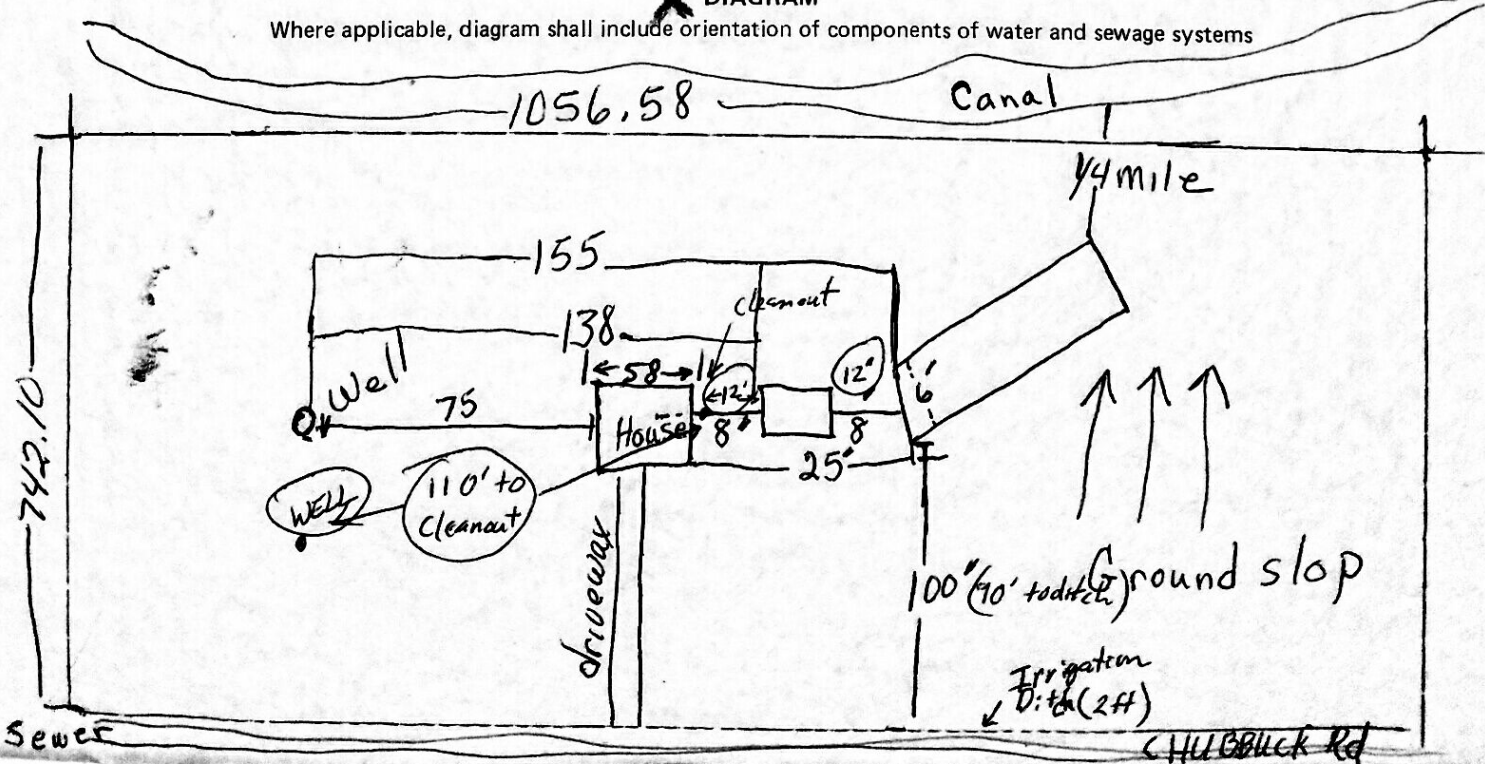 DIAGRAM
Where applicable, diagram shall include orientation of components of water and sewage systems
1056.58
Canal
1/4 mile
155
cleanout
138
←58→
12'
12'
6'
Well
75
House
8'
8
25'
742.10
WELL
110' to
Cleanout
driveway
100' (90' to ditch)
Ground slop
Irrigation
Ditch (2ft)
Sewer
CHUBBUCK Rd